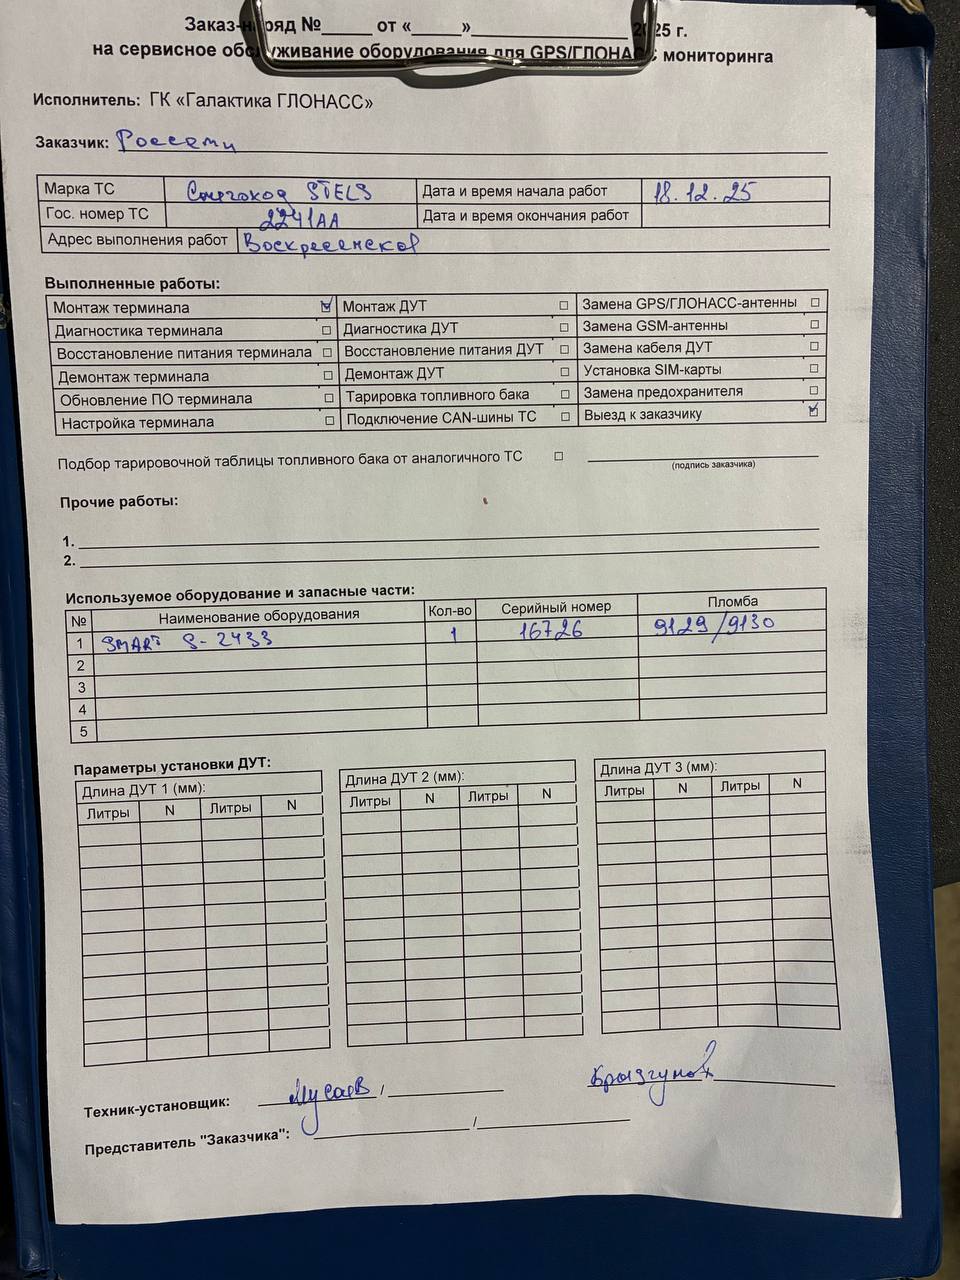 Заказ-наряд №_____ от «_____»_______________ 2025 г.
на сервисное обслуживание оборудования для GPS/ГЛОНАСС мониторинга
Исполнитель: ГК «Галактика ГЛОНАСС»
Заказчик: Россети
Марка ТС Снегоход STELS Дата и время начала работ 18.12.25
Гос. номер ТС 2241АА Дата и время окончания работ
Адрес выполнения работ Воскресенское
Выполненные работы:
Монтаж терминала ☑ Монтаж ДУТ □ Замена GPS/ГЛОНАСС-антенны □
Диагностика терминала □ Диагностика ДУТ □ Замена GSM-антенны □
Восстановление питания терминала □ Восстановление питания ДУТ □ Замена кабеля ДУТ □
Демонтаж терминала □ Демонтаж ДУТ □ Установка SIM-карты □
Обновление ПО терминала □ Тарировка топливного бака □ Замена предохранителя □
Настройка терминала □ Подключение CAN-шины ТС □ Выезд к заказчику ☑
Подбор тарировочной таблицы топливного бака от аналогичного ТС □
(подпись заказчика)
Прочие работы:
1.
2.
Используемое оборудование и запасные части:
№ Наименование оборудования Кол-во Серийный номер Пломба
1 SMART S-2433 1 16726 9129/9130
2
3
4
5
Параметры установки ДУТ:
Длина ДУТ 1 (мм): Длина ДУТ 2 (мм): Длина ДУТ 3 (мм):
Литры N Литры N Литры N Литры N Литры N Литры N
Техник-установщик: Мусаев / Брызгунов
Представитель "Заказчика": /